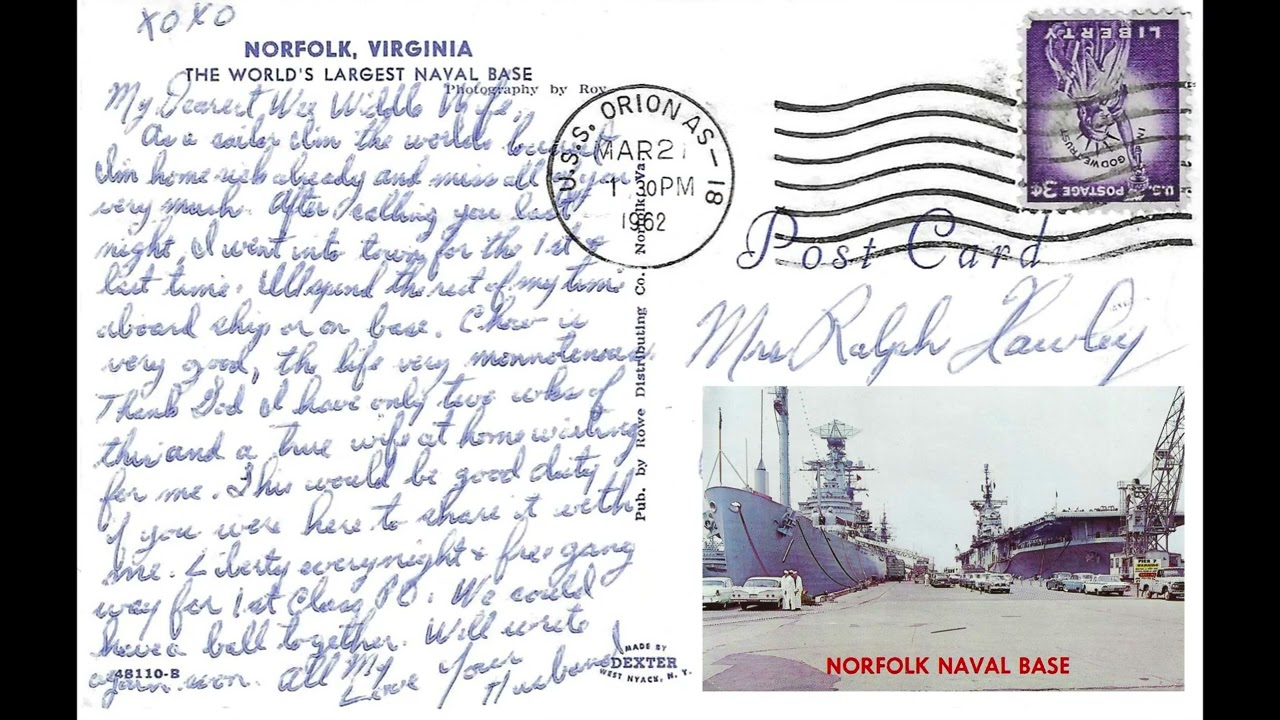 XOXO
NORFOLK, VIRGINIA
THE WORLD'S LARGEST NAVAL BASE
Photography by Roy
My Dearest Wee Widdle Wife,
As a sailor I'm the worlds
I'm home sick already and miss all of you
very much. After calling you last
night, I went into town for the 1st &
last time. I'll spend the rest of my time
aboard ship or on base. Chow is
very good, the life very
Thank God I have only two wks of
this and a true wife at home waiting
for me. This would be good duty
if you were here to share it with
me. Liberty every night & free gang
way for 1st Class PO. We could
have a ball together. Will write
again soon. All My
Love Your
Husband
48110-B
MADE BY
DEXTER
WEST NYACK, N.Y.
Pub. by Rowe Distributing Co. Norfolk, Va.
U.S.S. ORION AS-18
MAR 21
1 30 PM
1962
LIBERTY
IN
GOD WE TRUST
U.S. POSTAGE 3¢
Post Card
Mrs Ralph Hawley
PIER 7
NORFOLK NAVAL BASE